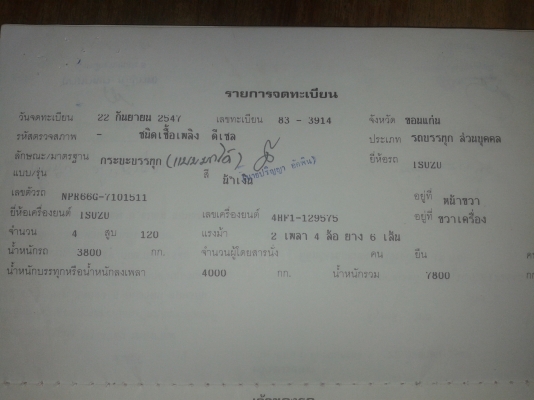 รายการจดทะเบียน
วันจดทะเบียน 22 กันยายน 2547 เลขทะเบียน 83 - 3914 จังหวัด ขอนแก่น
รหัสตรวจสภาพ - ชนิดเชื้อเพลิง ดีเซล ประเภท รถบรรทุก ส่วนบุคคล
ลักษณะ/มาตรฐาน กระบะบรรทุก (แบบยกได้) ยี่ห้อรถ ISUZU
แบบ/รุ่น สี น้ำเงิน
เลขตัวรถ NPR66G-7101511 อยู่ที่ หน้าขวา
ยี่ห้อเครื่องยนต์ ISUZU เลขเครื่องยนต์ 4HF1-129575 อยู่ที่ ขวาเครื่อง
จำนวน 4 สูบ 120 แรงม้า 2 เพลา 4 ล้อ ยาง 6 เส้น
น้ำหนักรถ 3800 กก. จำนวนผู้โดยสารนั่ง คน ยืน
น้ำหนักบรรทุกหรือน้ำหนักลงเพลา 4000 กก. น้ำหนักรวม 7800